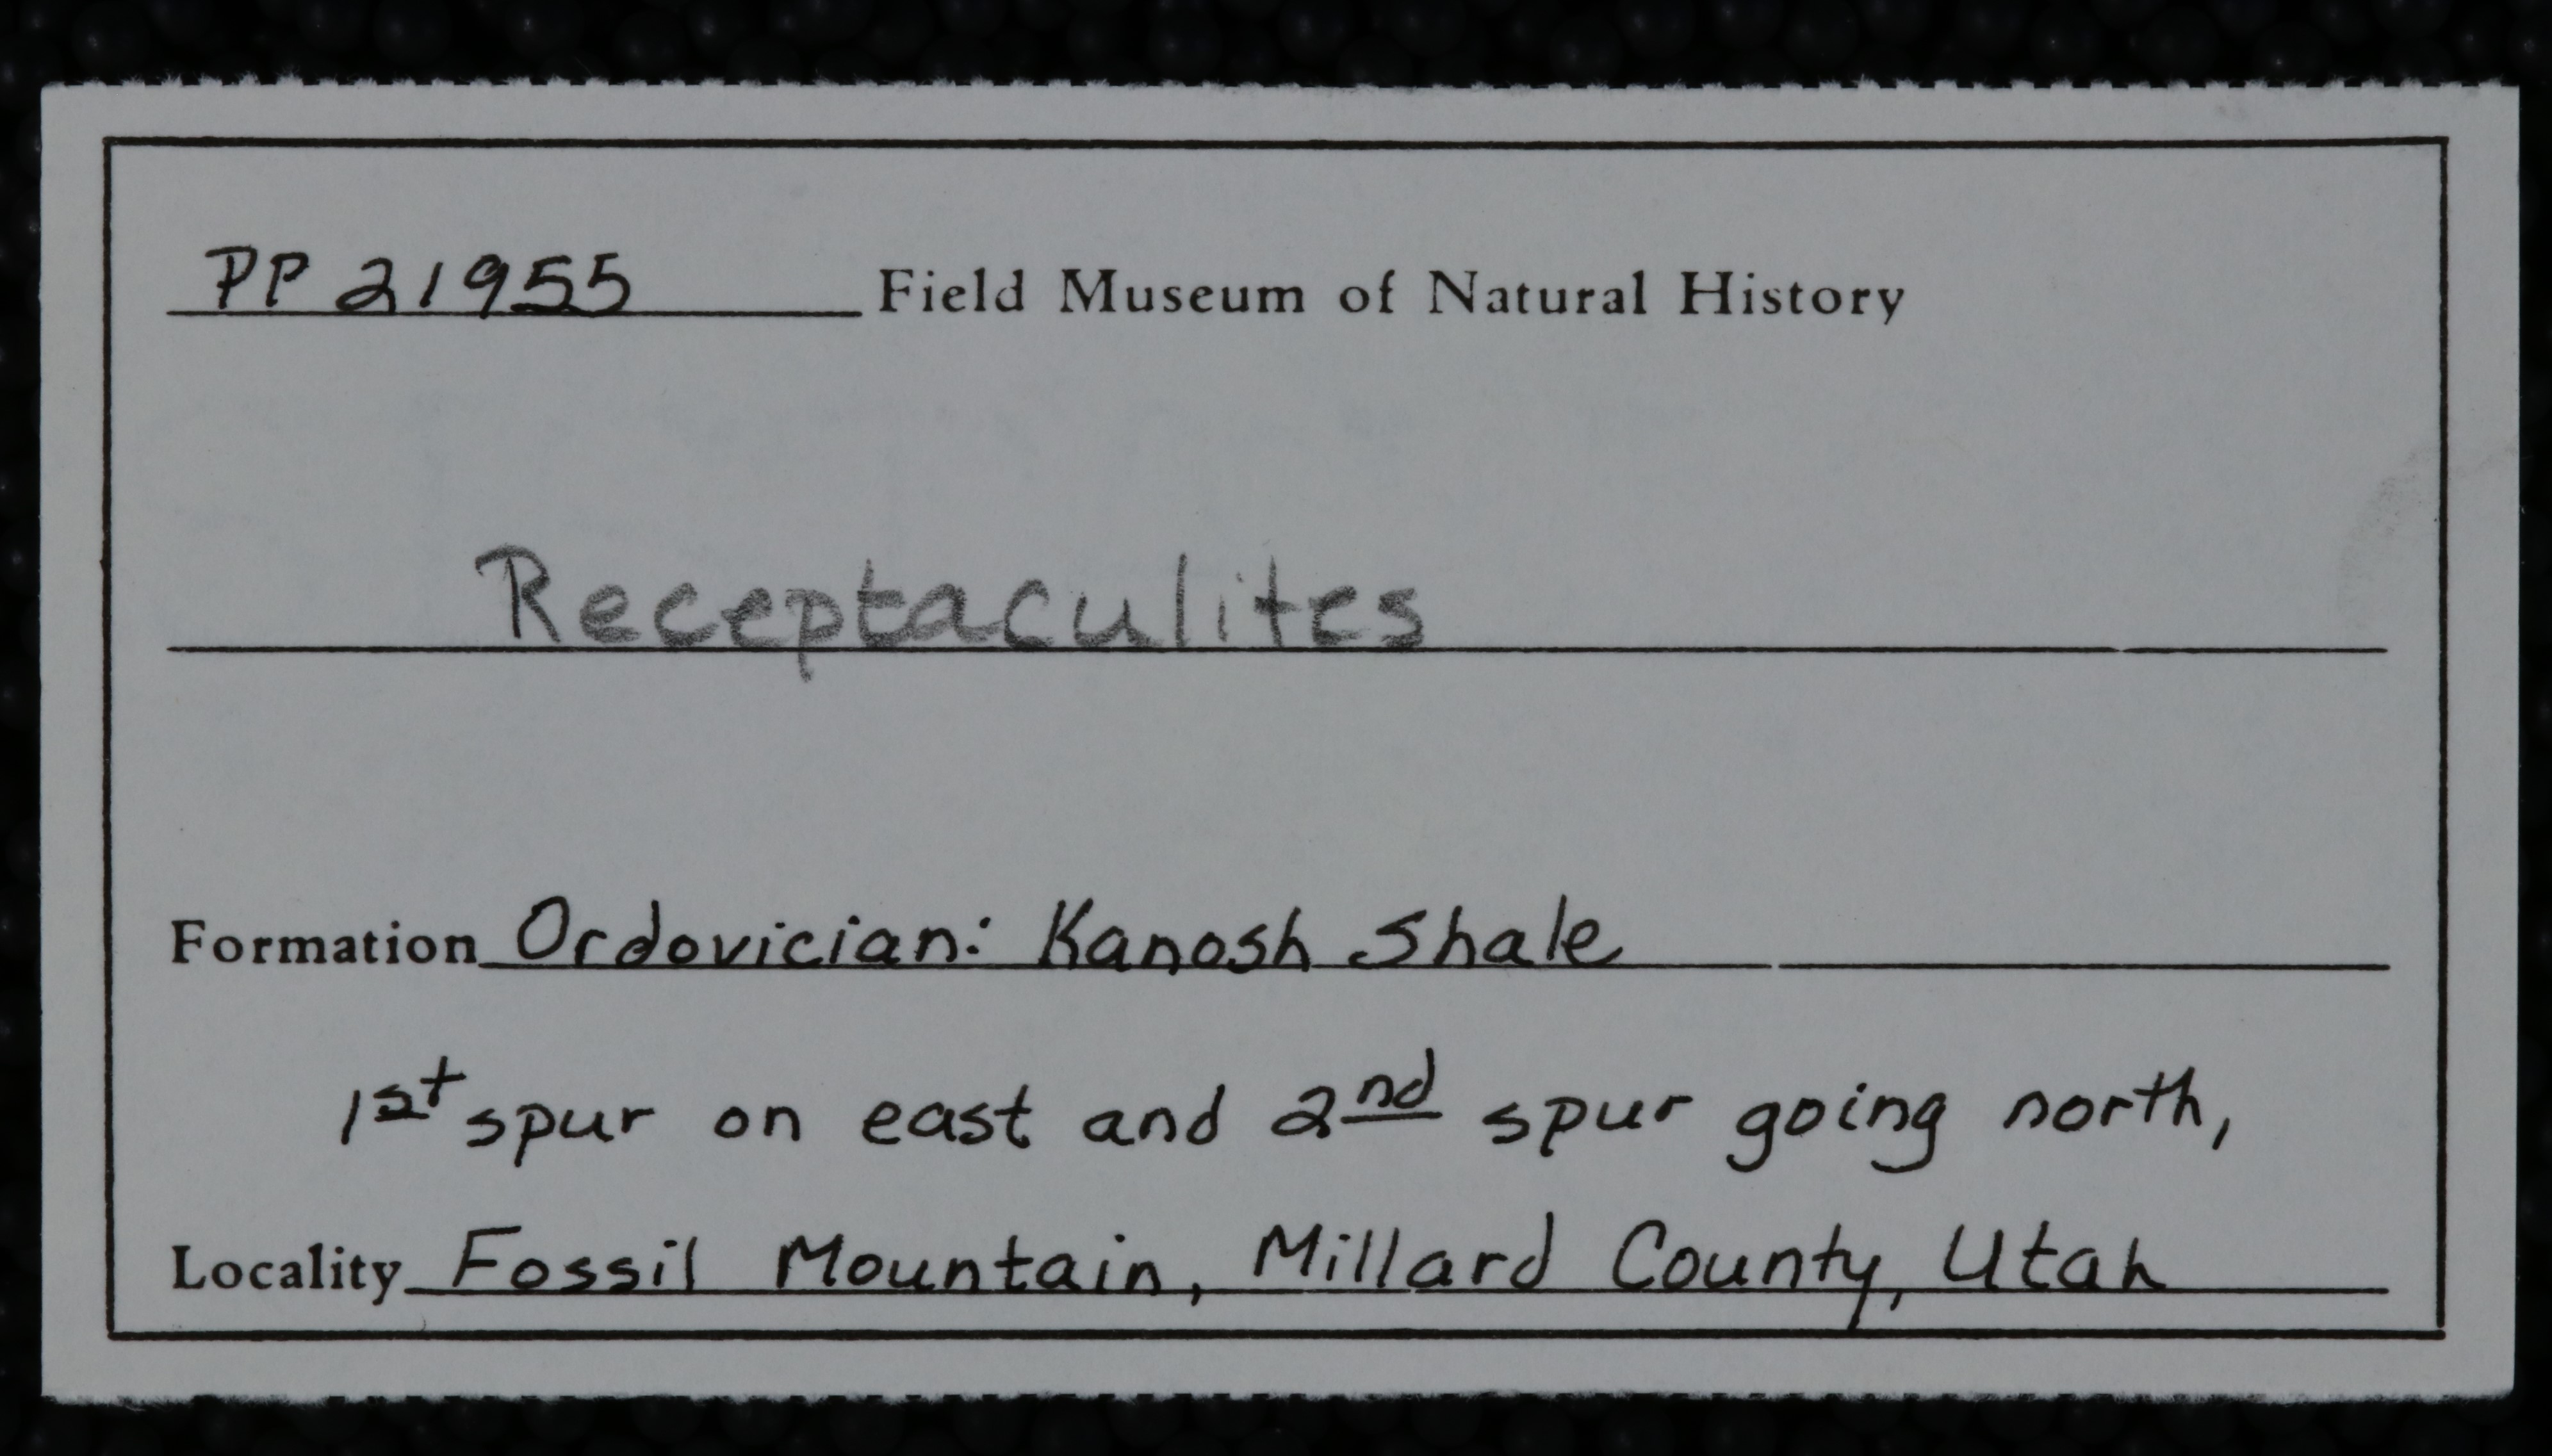 PP 21955 Field Museum of Natural History
Receptaculites
Formation Ordovician: Kanosh Shale
1st spur on east and 2nd spur going north,
Locality Fossil Mountain, Millard County, Utah